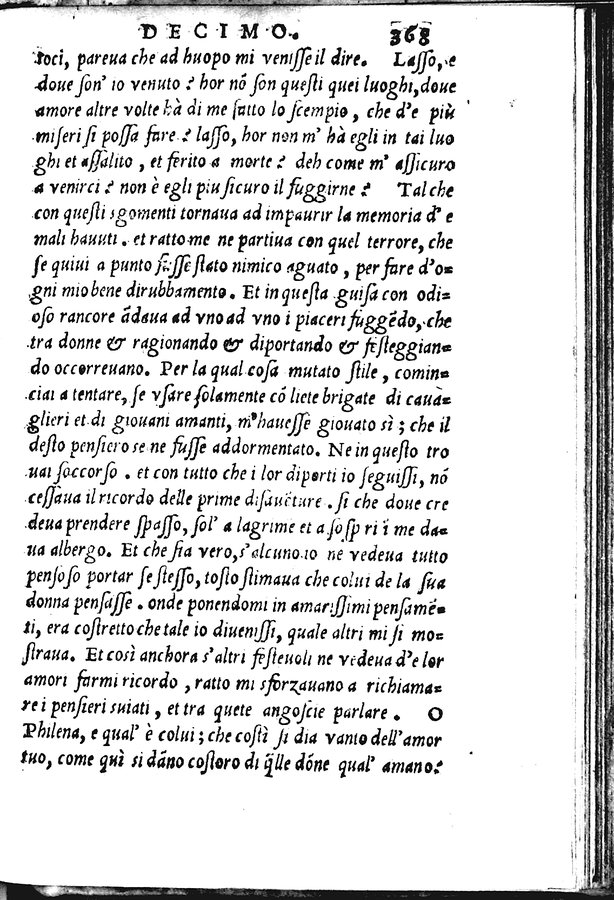 DECIMO. 368
toci, pareua che ad huopo mi venisse il dire. Lasso, e
doue son' io venuto ? hor nõ son questi quei luoghi, doue
amore altre volte hà di me fatto lo scempio, che d'e più
miseri si possa fare ? lasso, hor non m' hà egli in tai luo
ghi et assalito, et ferito a morte ? deh come m' assicuro
a venirci ? non è egli piu sicuro il fuggirne ? Tal che
con questi sgomenti tornaua ad impaurir la memoria d' e
mali hauuti. et ratto me ne partiua con quel terrore, che
se quiui a punto fusse stato nimico aguato, per fare d'o=
gni mio bene dirubbamento. Et in questa guisa con odi=
oso rancore ãdaua ad vno ad vno i piaceri fuggẽdo, che
tra donne & ragionando & diportando & festeggian=
do occorreuano. Per la qual cosa mutato stile, comin=
ciai a tentare, se vsare solamente cõ liete brigate di cauà=
glieri et di giouani amanti, m'hauesse giouato sì ; che il
desto pensiero se ne fusse addormentato. Ne in questo tro
uai soccorso. et con tutto che i lor diporti io seguissi, nõ
cessaua il ricordo delle prime disauẽture. si che doue cre
deua prendere spasso, sol' a lagrime et a sospiri i me da=
ua albergo. Et che sia vero, s'alcuno io ne vedeua tutto
pensoso portar se stesso, tosto stimaua che colui de la sua
donna pensasse. onde ponendomi in amarissimi pensamẽ=
ti, era costretto che tale io diuenissi, quale altri mi si mo=
straua. Et così anchora s'altri festeuoli ne vedeua d'e lor
amori farmi ricordo, ratto mi sforzauano a richiama=
re i pensieri suiati, et tra quete angoscie parlare. O
Philena, e qual' è colui ; che costì si dia vanto dell'amor
tuo, come quì si dãno costoro di q̃lle dõne qual' amano?